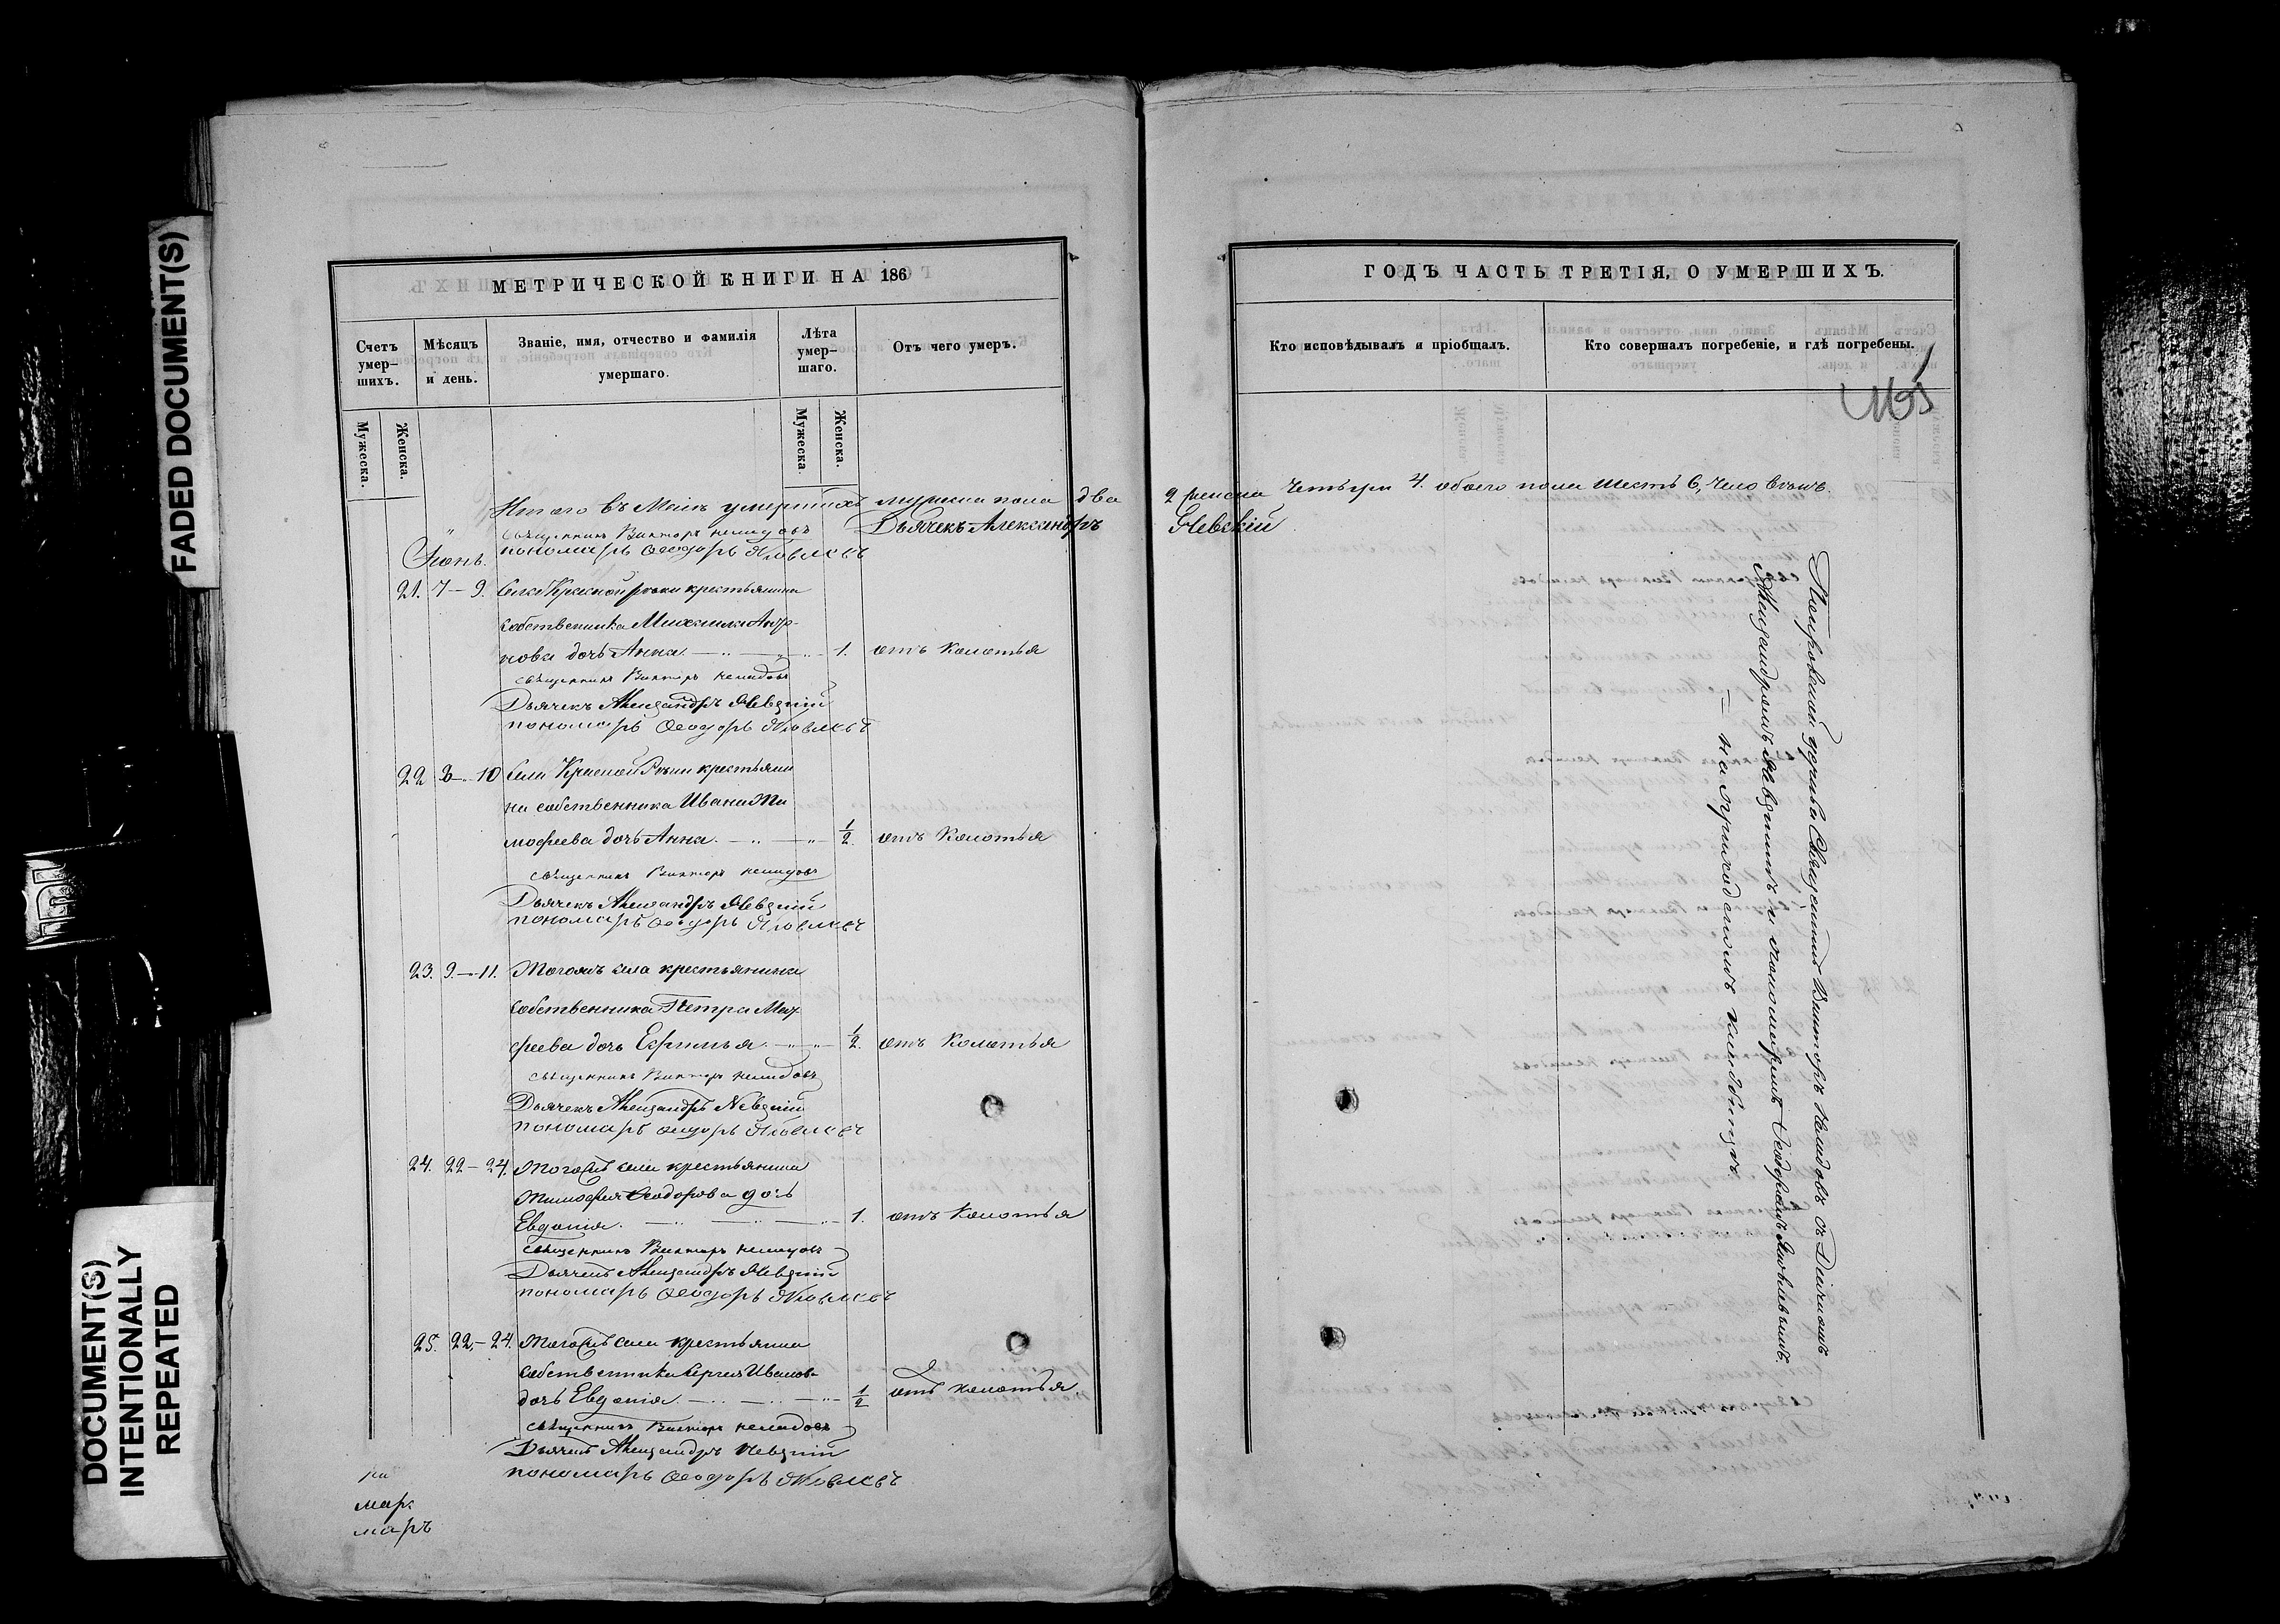 FADED DOCUMENT(S)
DOCUMENT(S)
INTENTIONALLY
REPEATED
МЕТРИЧЕСКОЙ КНИГИ НА 186
Счетъ умер-шихъ.
Мѣсяцъ и день.
Званіе, имя, отчество и фамилія умершаго.
Лѣта умер-шаго.
Отъ чего умеръ.
Мужеска.
Женска.
Мужеска.
Женска.
Итого въ Маѣ умершихъ мужска пола два
священникъ Викторъ Нелидовъ Дьячекъ Александръ
Іюнь. пономарь Ѳеодоръ Яковлевъ
21. 7 – 9. Села Красной рѣчки крестьянина
собственника Михаила
нова дочь Анна. 1. отъ колотья
священникъ Викторъ Нелидовъ
Дьячекъ Александръ Невскій
пономарь Ѳеодоръ Яковлевъ
22 8 – 10 Села Красной Рѣчки крестьяни
на собственника Ивана Ти
мофеева дочь Анна. 1/2. отъ колотья
священникъ Викторъ Нелидовъ
Дьячекъ Александръ Невскій
пономарь Ѳеодоръ Яковлевъ
23. 9. – 11. Тогожъ села крестьянина
собственника Петра Мат
феева дочь Ефимья. 1/2. отъ колотья
священникъ Викторъ Нелидовъ
Дьячекъ Александръ Невскій
пономарь Ѳеодоръ Яковлевъ
24. 22 – 24. Тогожъ села крестьянина
Тимофея Ѳеодорова дочь
Евдокія. 1. отъ колотья
священникъ Викторъ Нелидовъ
Дьячекъ Александръ Невскій
пономарь Ѳеодоръ Яковлевъ
25. 22. – 24. Тогожъ села крестьянина
собственника Сергея Иванов-
дочь Евдокія. 1/2 отъ колотья
священникъ Викторъ Нелидовъ
Дьячекъ Александръ Невскій
пономарь Ѳеодоръ Яковлевъ
на
мар
маръ
ГОДЪ ЧАСТЬ ТРЕТІЯ, О УМЕРШИХЪ.
Кто исповѣдывалъ и пріобщалъ.
Кто совершалъ погребеніе, и гдѣ погребены.
2 женска четыри 4. обоего пола шесть 6, человѣкъ.
Невскій
Священникъ Викторъ Нелидовъ съ Дьячкомъ
Александромъ Невскимъ и пономаремъ Ѳеодоромъ Яковлевымъ.
на приходскомъ кладбищѣ.